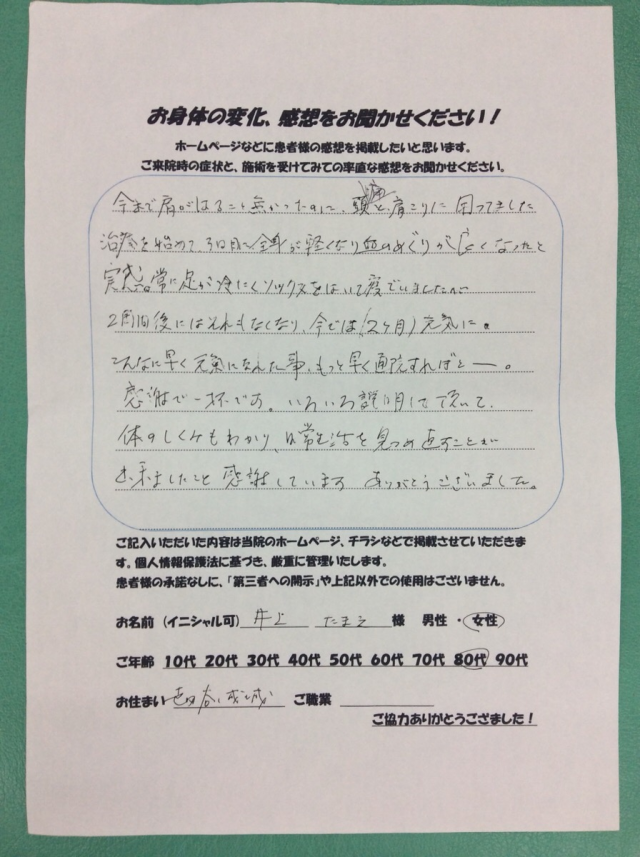 お身体の変化、感想をお聞かせください！
ホームページなどに患者様の感想を掲載したいと思います。
ご来院時の症状と、施術を受けてみての率直な感想をお聞かせください。
今まで肩がはること無かったのに、頭痛と、肩こりに困ってました
治療を始めて、3日目に全身が軽くなり血のめぐりが良くなったと
実感。常に足が冷たくソックスをはいて寝ていましたが
2週間後にはそれもなくなり、今では(2ヶ月)元気に。
こんなに早く元気になれた事、もっと早く通院すればとー。
感謝で一杯です。いろいろ説明して頂いて、
体のしくみもわかり、日常生活を見つめ直すことが
出来ましたこと感謝しています ありがとうございました。
ご記入いただいた内容は当院のホームページ、チラシなどで掲載させていただきま
す。個人情報保護法に基づき、厳重に管理いたします。
患者様の承諾なしに、「第三者への開示」や上記以外での使用はございません。
お名前（イニシャル可） 井上 たまえ 様 男性 ・ 女性
ご年齢 10代 20代 30代 40代 50代 60代 70代 80代 90代
お住まい 世田谷、成城 ご職業
ご協力ありがとうござました！